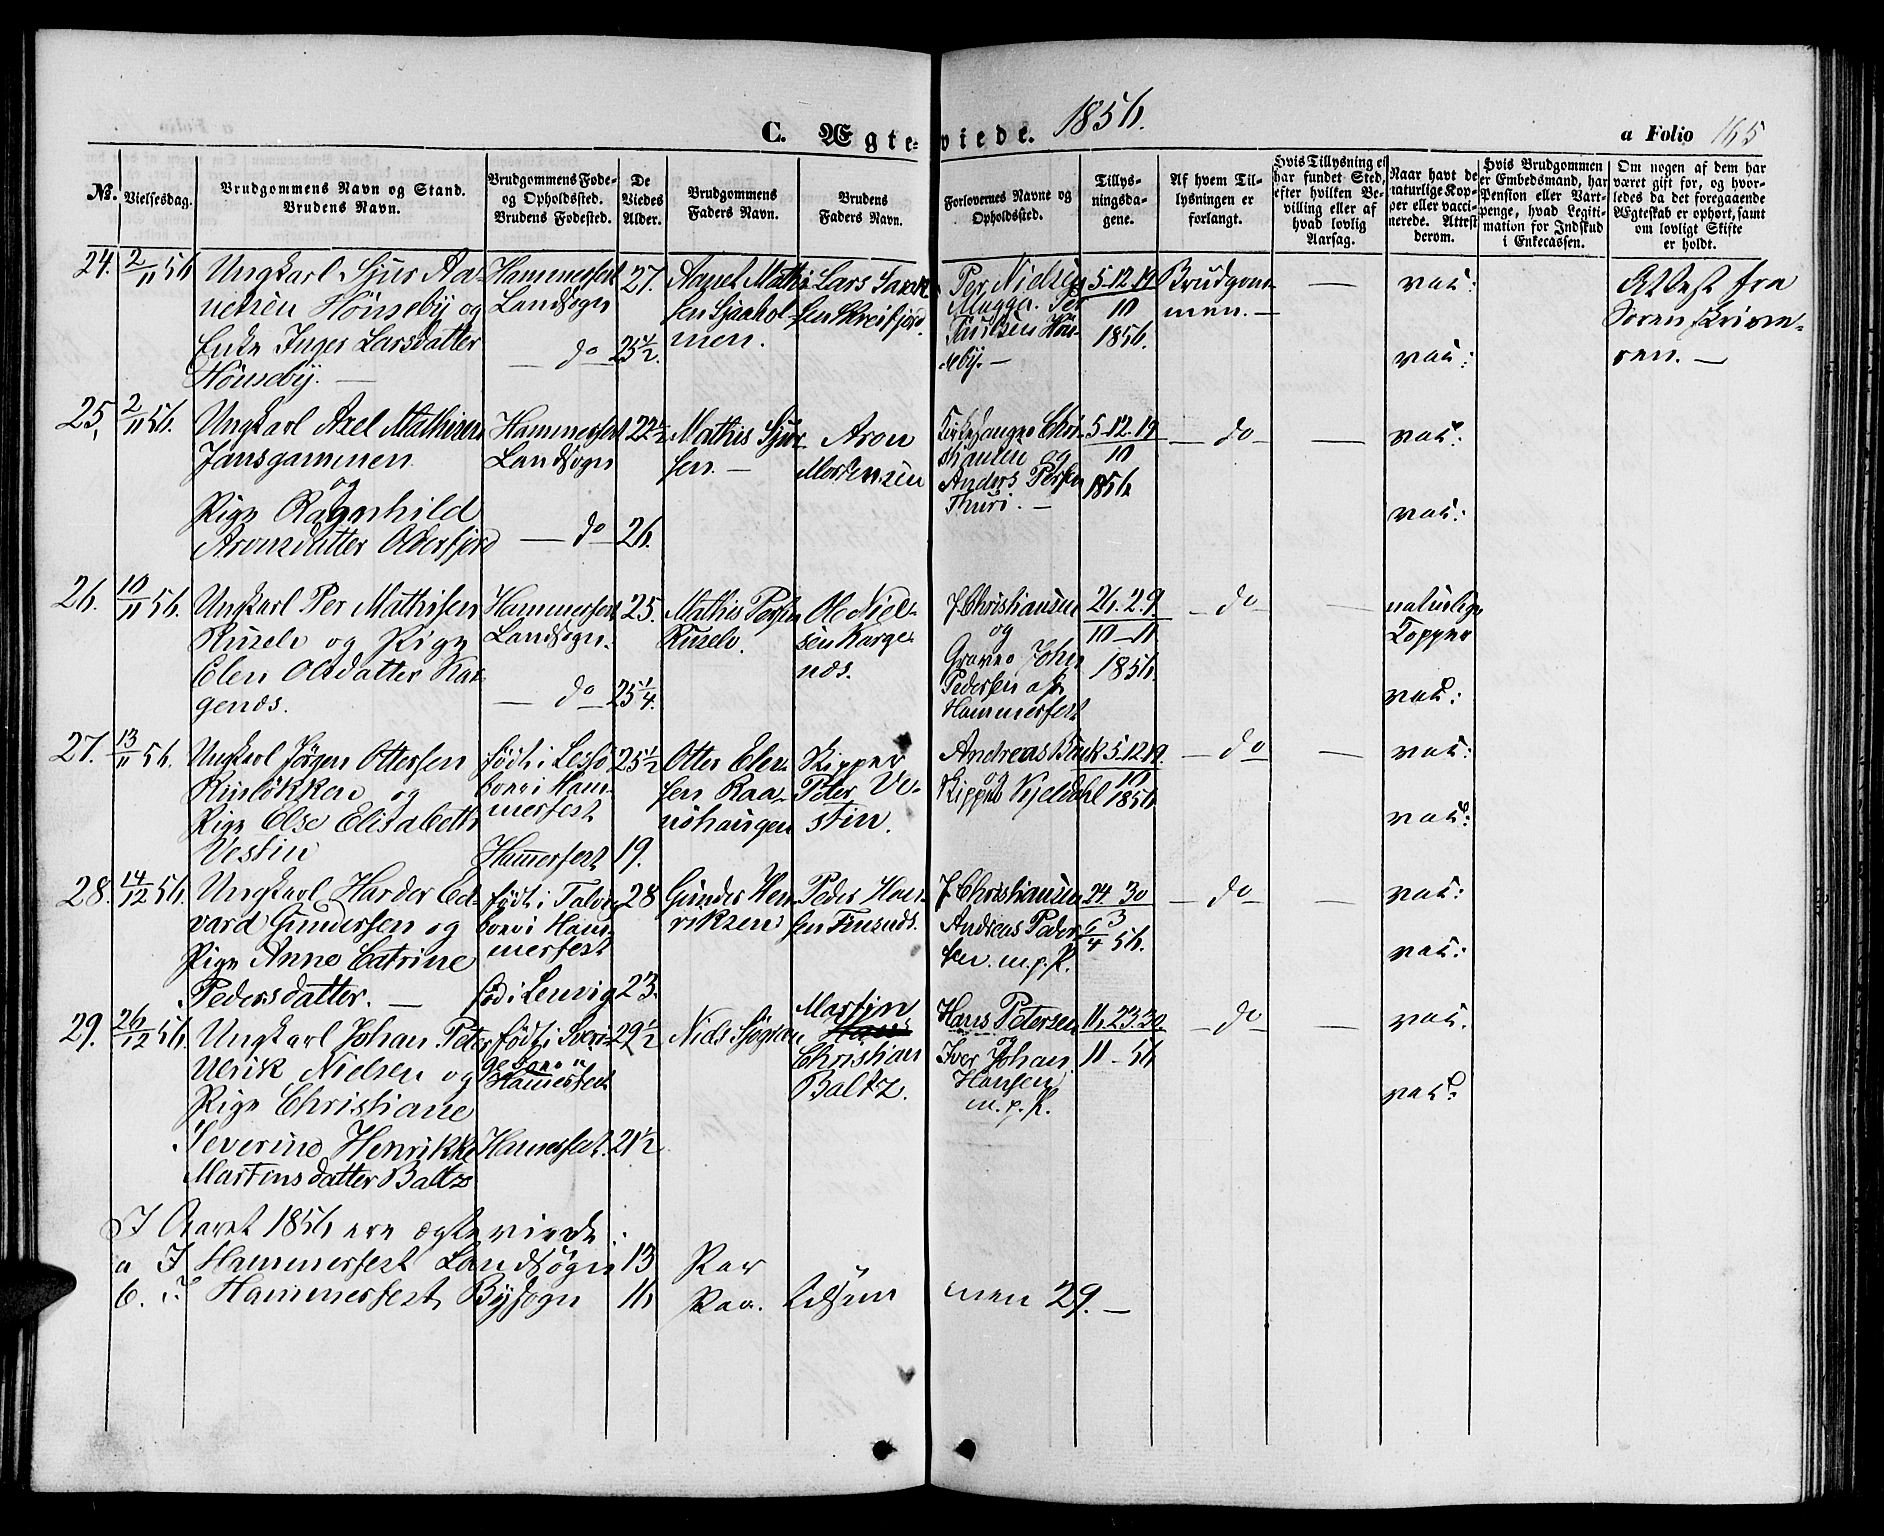 C. Ægte-viede. 1856.
a Folio 165
No.
Vielsesdag.
Brudgommens Navn og Stand.
Brudens Navn.
Brudgommens Fode-
og Opholdssted.
Brudens Fodested.
De
Viedes
Alder.
Brudgommens
Faders Navn.
Brudens
Faders Navn.
Forlovernes Navne og
Opholdssted.
Tillys-
ningsda-
gene.
Af hvem Til-
lysningen er
forlangt.
Hvis Tillysning ei
har fundet Sted,
efter hvilken Be-
villing eller af
hvad lovlig
Aarsag.
Naar havt de
naturlige Kop-
per eller vacci-
nerede. Attest
derom.
Hvis Brudgommen
er Embedsmand, har
Pension eller Vart-
penge, hvad Legiti-
mation for Indskud
i Enkecassen.
Om nogen af dem har
været gift for, og hvor-
ledes da det foregaaende
Ægteskab er ophort, samt
om lovligt Skifte
er holdt.
24. 2/11 56
Ungkarl Sjur Aa-
nesen Hönseby og
Enke Inger Larsdatter
Hönseby. —
Hammerfest
Landsogn
— do —
27.
25 1/2.
Aanet Mathi-
sen Sjaahol-
men.
Lars
sen Skreifjord.
Per Nielsen
Mugga. Per
Hön-
seby. —
5-12-19
10
1856.
Brudgom-
men. —
—
vac:
vac:
Attest fra
Soren-skrive-
ren. —
25. 2/11 56.
Ungkarl Axel Mathisen
Jansgammen
og
Pige Ragnhild
Aronsdatter Oderfjord
Hammerfest
Landsogn
— do —
22 1/2
26.
Mathis Sjur-
sen. —
Aron
Mortensen
Kirkesanger Chri-
stiansen og
Anders Persen
Thuri. —
5-12-19
10
1856
— do —
—
vac:
vac:
26. 10/11 56.
Ungkarl Per Mathisen
Ruselv og Pige
Elen Olsdatter Kar-
genæs.
Hammerfest
Landsogn.
— do —
25.
25 1/4.
Mathis Persen
Ruselv.
Ole Niel-
sen Karge-
næs.
J Christiansen
og
Graver Johan
Pedersen af
Hammerfest
26. 2. 9.
10 — 11
1856.
— do —
—
naturlige
Kopper
vac:
27. 13/11 56.
Ungkarl Jörgen Ottersen
Rislökken og
Pige Else Elisabeth
Vestin
födt i Lessö
boer i Ham-
merfest
Hammerfest
25 1/2
19.
Otter Elen-
sen Raa-
nshaugen
Skipper
Peter Ve-
stin.
Andreas Buck
og
Skipper Kjeldahl
5. 12. 19.
10
1856
— do —
—
vac:
vac:
28. 14/12 56.
Ungkarl Harder Ed-
vard Gundersen og
Pige Anne Catrine
Pedersdatter. —
födt i Talvig
boer i Ham-
merfest
föd i Lenvig
28
23.
Gunder Hen-
riksen
Peder Han-
sen Finsnæs.
J Christiansen
Andreas Peder-
sen. m. p. P.
24. 30
56.
— do —
—
vac:
vac:
29. 26/12 56.
Ungkarl Johan Peter
Ulrik Nielsen og
Pige Christiane
Severine Henrikke
Martinsdatter Baltz
födt i Sveri-
ge boer i
Hammerfest
Hamerfest.
29 1/2
21 1/2
Niels Sjögren
Martin
Christian
Baltz.
Hans Petersen
og
Iver Johan
Hansen
m. p. P.
16. 23. 30
11 — 56
— do —
—
vac.
vac:
I Aaret 1856 ere ægteviede
a I Hammerfest Landsogn 13 Par
b. i Hammerfest Bysogn 16 Par. tilsam men 29. —